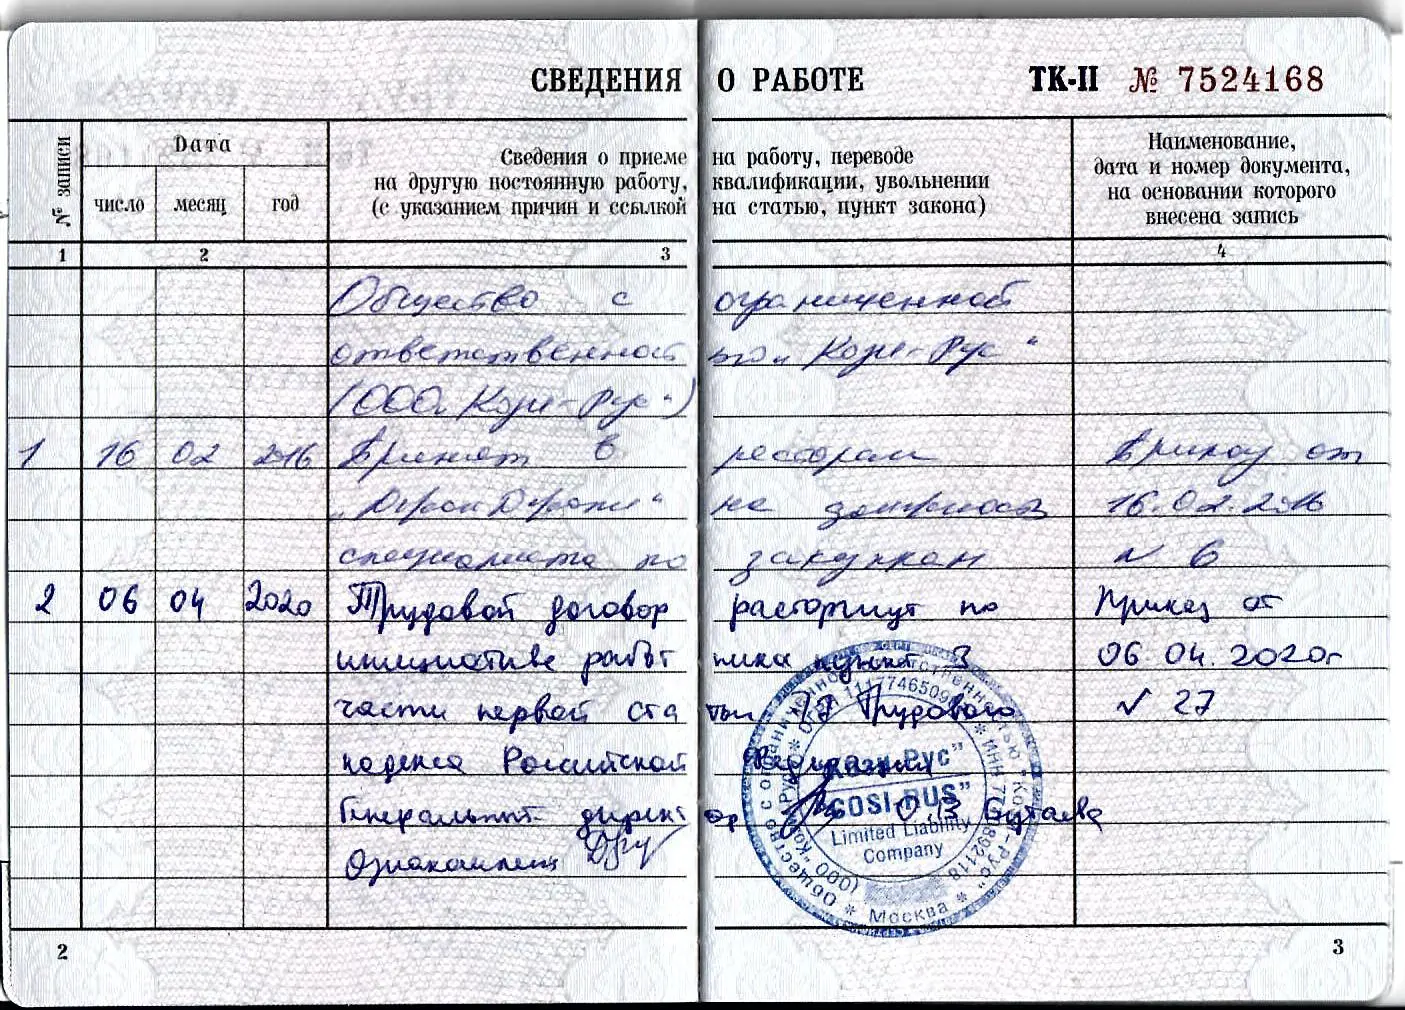 СВЕДЕНИЯ О РАБОТЕ ТК-II № 7524168
№ записи
Дата
число месяц год
Сведения о приеме на работу, переводе
на другую постоянную работу, квалификации, увольнении
(с указанием причин и ссылкой на статью, пункт закона)
Наименование,
дата и номер документа,
на основании которого
внесена запись
1 2 3 4
Общество с ограниченной
ответственностью "Кози-Рус"
(ООО "Кози-Рус")
1 16 02 2016 Принят в ресторан Приказ от
на должность 16.02.2016
специалиста по закупкам № 6
2 06 04 2020 Трудовой договор расторгнут по Приказ от
инициативе работника пункт 3 06.04.2020г
части первой статьи 77 Трудового № 27
кодекса Российской Федерации
Генеральный директор О.В. Бутаева
Ознакомлен
"Кози-Рус"
"COSI-RUS"
Limited Liability
Company
(ООО "Кози-Рус")
* Москва *
2 3